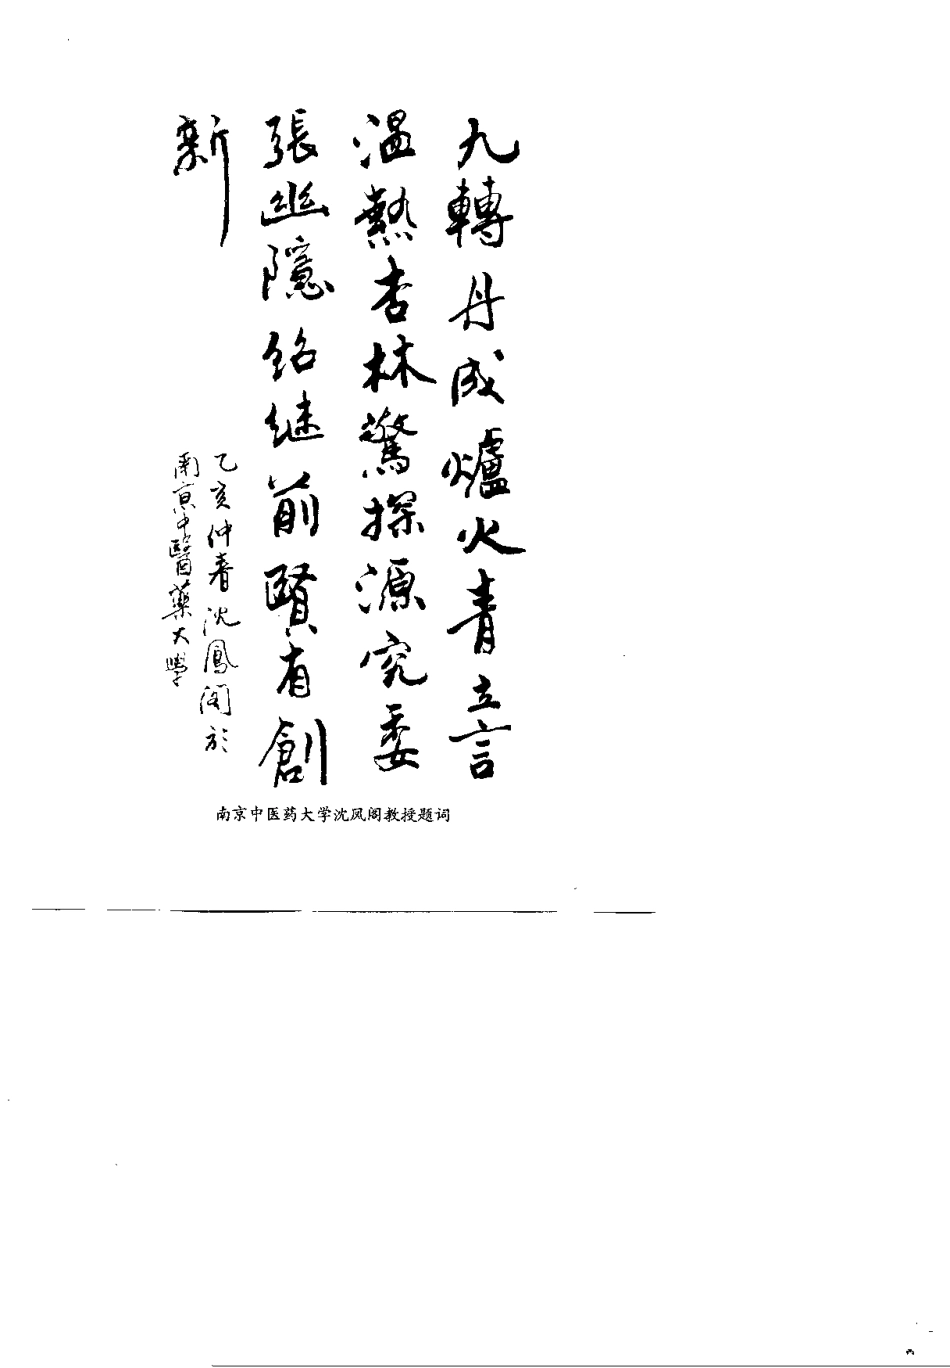 九轉丹成爐火青立言
温熱杏林驚探源究委
張幽隱銘继前賢有創
新
乙亥仲春沈鳳阁於
南京中醫藥大學
南京中医药大学沈凤阁教授题词